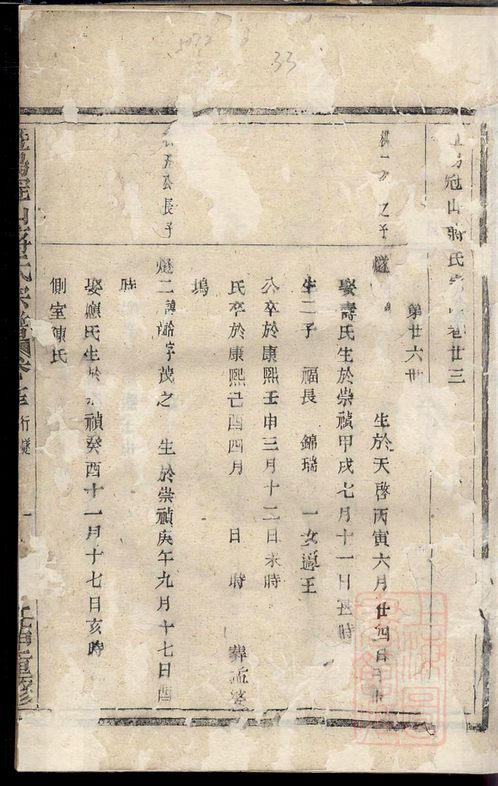 冠山蔣氏宗譜卷廿三
第廿六世
燧一 生於天啓丙寅六月廿四日
娶壽氏生於崇禎甲戌七月十一日丑時
生二子 福長 錦瑞 一女適王
公卒於康熙壬申三月十二日未時
氏卒於康熙己酉四月 日 時 葬孟婆
塢
長子
燧二諱 字茂之 生於崇禎庚午九月十七日酉
時
娶 氏生於崇禎癸酉十一月十七日亥時
側室陳氏
冠山蔣氏宗譜卷廿三 行燧 一
33